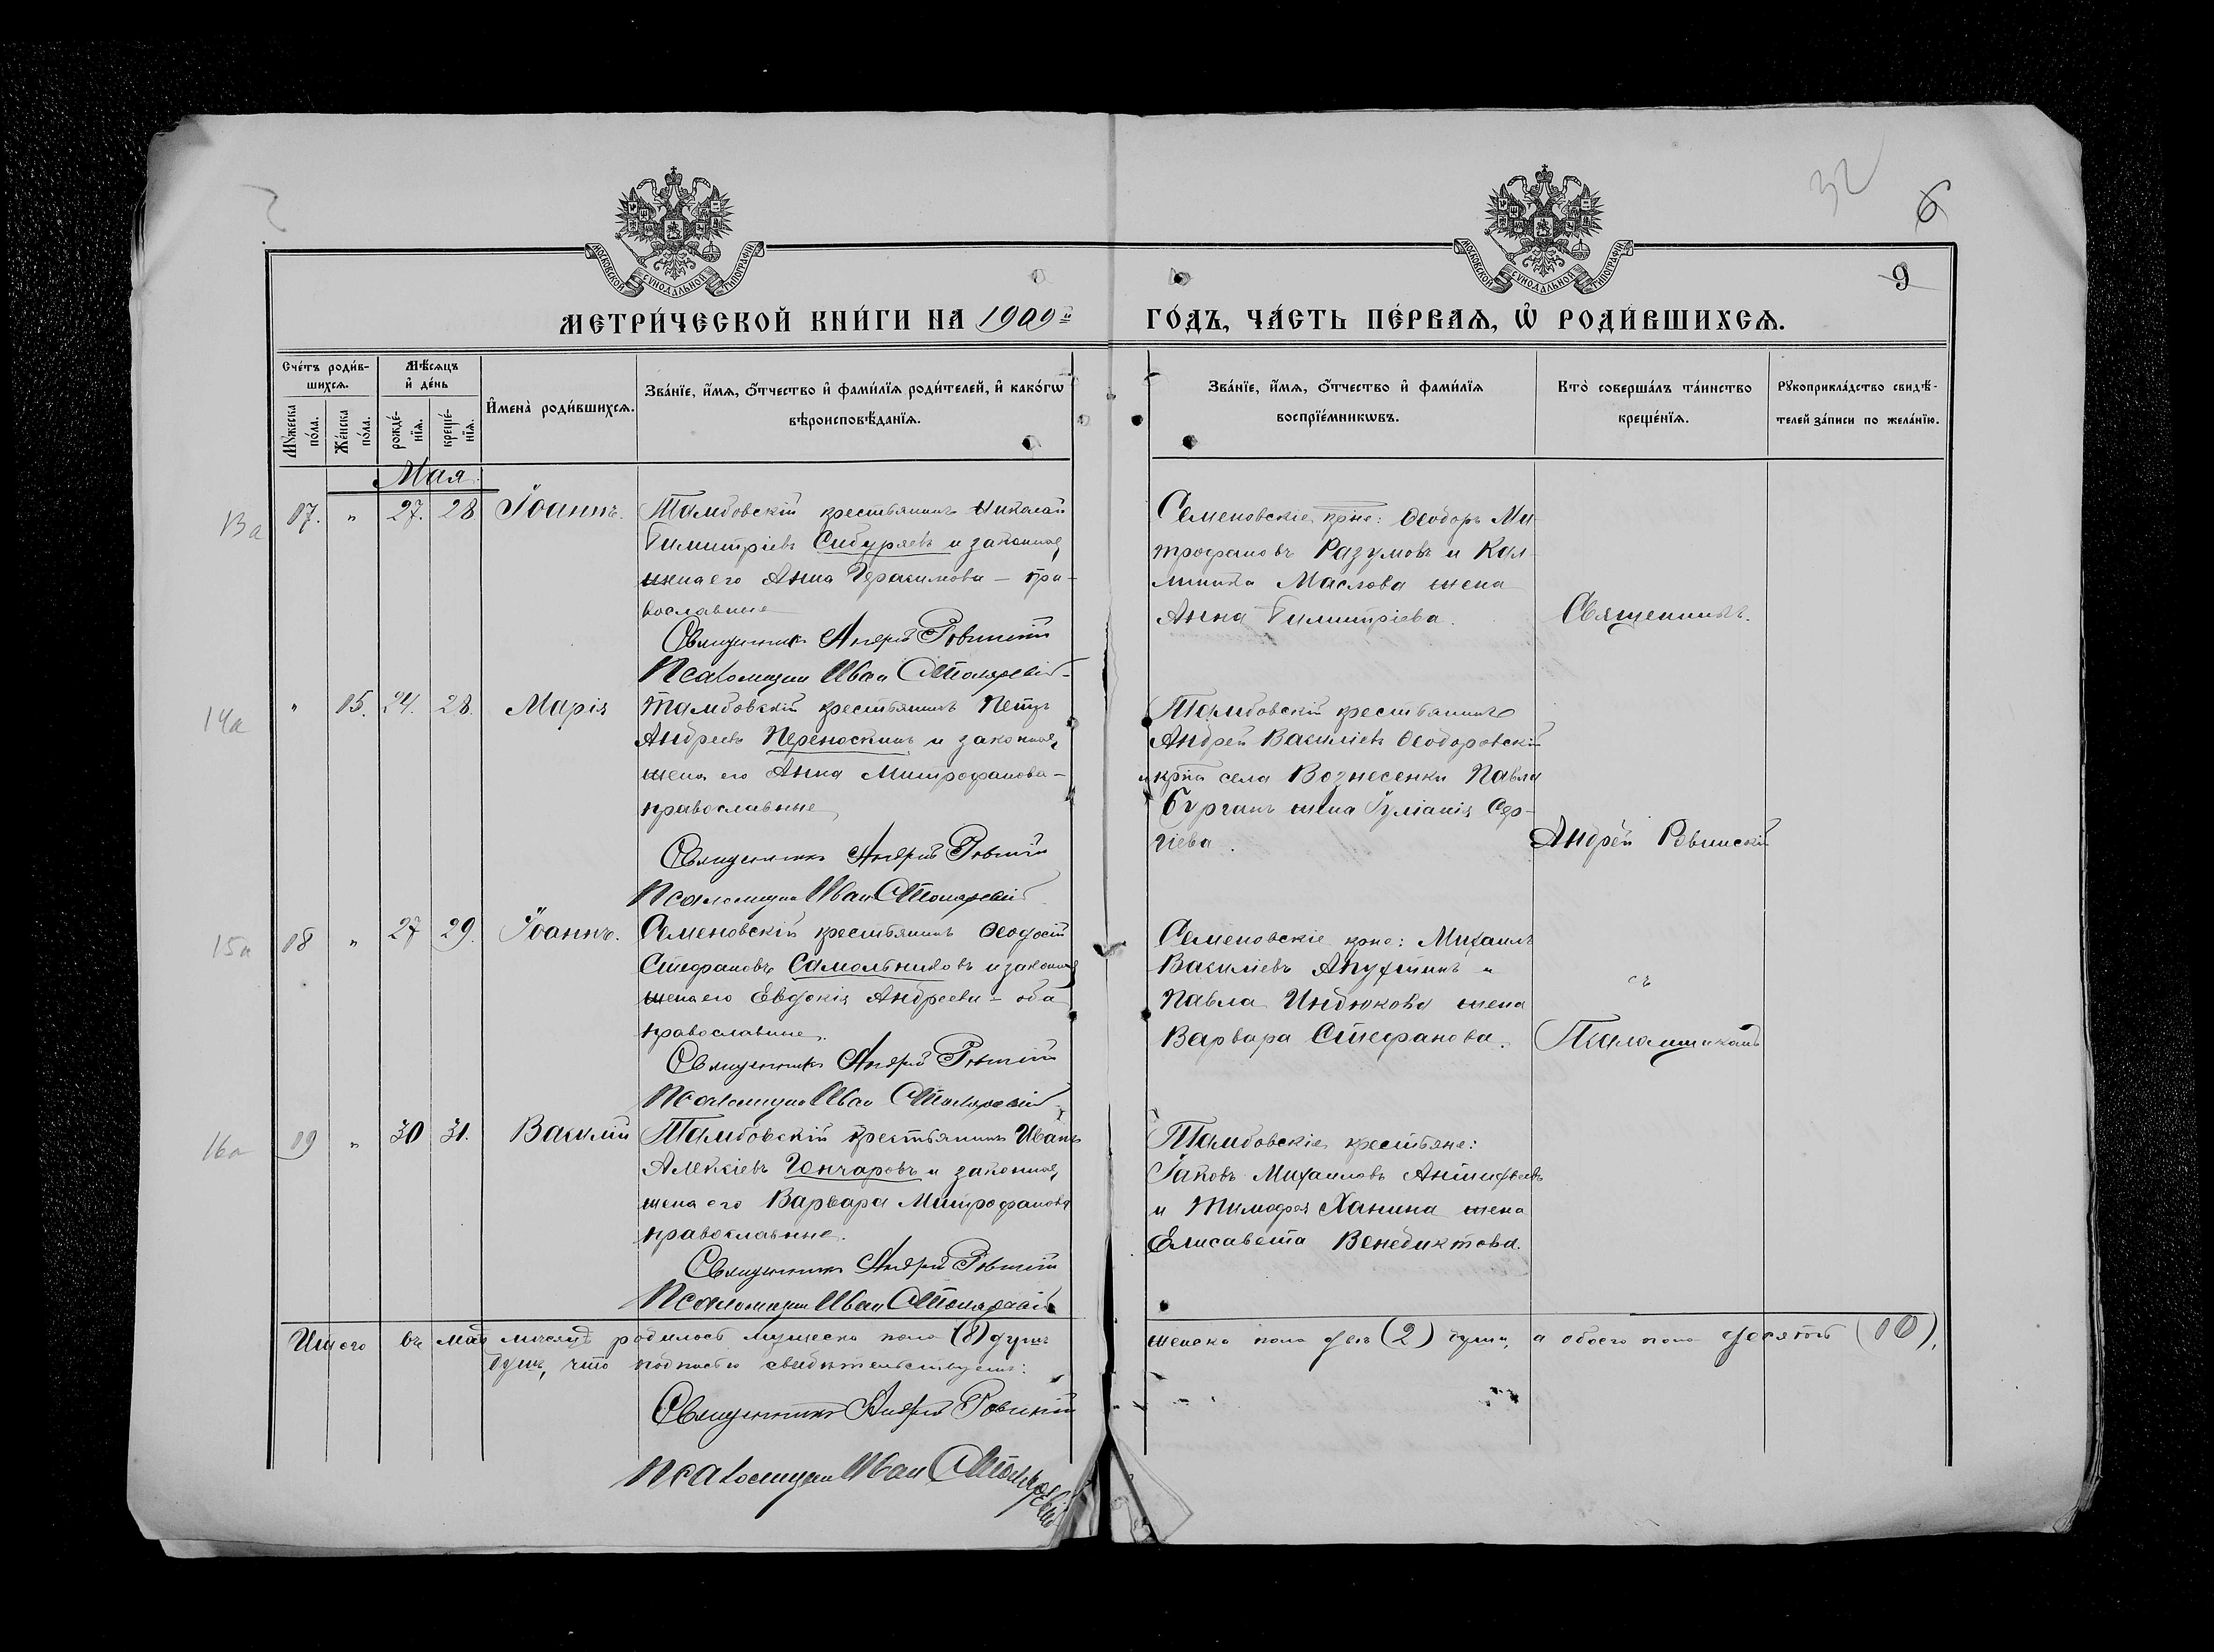 32
6
9
МОСКОВСКОЙ СѴНОДАЛЬНОЙ ТИПОГРАФІИ
МОСКОВСКОЙ СѴНОДАЛЬНОЙ ТИПОГРАФІИ
МЕТРИ́ЧЕСКОЙ КНИ́ГИ НА 1909й ГО́ДЪ, ЧА́СТЬ ПЕ́РВАѦ, Ѡ҆ РОДИ́ВШИХСѦ.
Сче́тъ роди́в-
шихсѧ.
Мꙋ́жеска по́ла.
Же́нска по́ла.
Мѣ́сѧцъ
и҆ де́нь
рожде́-
нїѧ.
креще́-
нїѧ.
И҆мена̀ роди́вшихсѧ.
Зва́нїе, и҆́мѧ, ѻ҆́тчество и҆ фами́лїѧ роди́телей, и҆ како́гѡ
вѣроисповѣ́данїѧ.
Зва́нїе, и҆́мѧ, ѻ҆́тчество и҆ фами́лїѧ
воспрїе́мникѡвъ.
Кто̀ соверша́лъ та́инство
креще́нїѧ.
Рꙋкоприкла́дство свидѣ́-
телей за́писи по жела́нїю.
Мая
13а 07. " 27. 28 Іоаннъ.
Тамбовскій крестьянинъ Николай
Димитріевъ Сибуряевъ и законная
жена его Анна Герасимова – пра-
вославные
Священникъ Андрей Ровинскій
Псаломщик Иван Столяревскій
Семеновскіе крне: Ѳеодоръ Ми-
трофановъ Разумовъ и
Маслова жена
Анна Димитріева.
Священникъ.
14а " 05. 24. 28. Марія
Тамбовскій крестьянинъ Петръ
Андреевъ Переноскинъ и законная
жена его Анна Митрофанова –
православные
Священникъ Андрей Ровинскій
Псаломщик Иван Столяревскій
Тамбовскій крестьянинъ
Андрей Василіевъ Ѳеодоровскій
и крна села Вознесенки Павла
Бурганъ жена Іуліанія Сер-
гіева.
Андрей Ровинскій
15а 08 " 27 29. Іоаннъ.
Семеновскій крестьянинъ Ѳеодосій
Стефановъ Самольниковъ и законная
жена его Евдокія Андреева – оба
православные.
Священникъ Андрей Ровинскій
Псаломщик Иван Столяревскій
Семеновскіе крне: Михаилъ
Василіевъ Апухтинъ и
Павла Индюкова жена
Варвара Стефанова.
съ
Псаломщикомъ
16а 09 " 30 31. Василій
Тамбовскій крестьянинъ Иванъ
Алексіевъ Гончаровъ и законная
жена его Варвара Митрофанова
православные.
Священникъ Андрей Ровинскій
Псаломщик Иван Столяревскій
Тамбовскіе крестьяне:
Іаковъ Михаиловъ Антифьевъ
и Тимофея Ханина жена
Елисавета Венедиктова.
Итого въ маѣ мѣсяцѣ родилось мужеска пола (8) душъ женска пола двѣ (2) души, а обоего пола десять (10),
душъ, что подписью свидѣтельствуемъ:
Священникъ Андрей Ровинскій
Псаломщик Иван Столяревскій